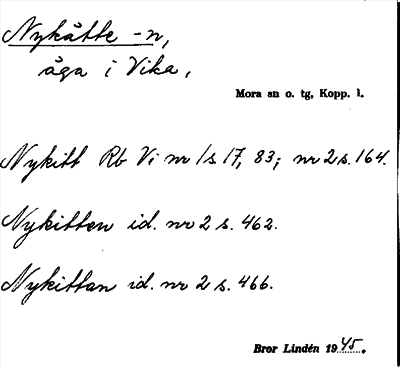 Nykåtte -n,
åga i Vika,
Mora sn o. tg, Kopp. l.
Nykitt Rb Vi nr 1 s 17, 83; nr 2 s. 164.
Nykitten id. nr 2 s. 462.
Nykittan id. nr 2 s. 466.
Bror Lindén 1945.